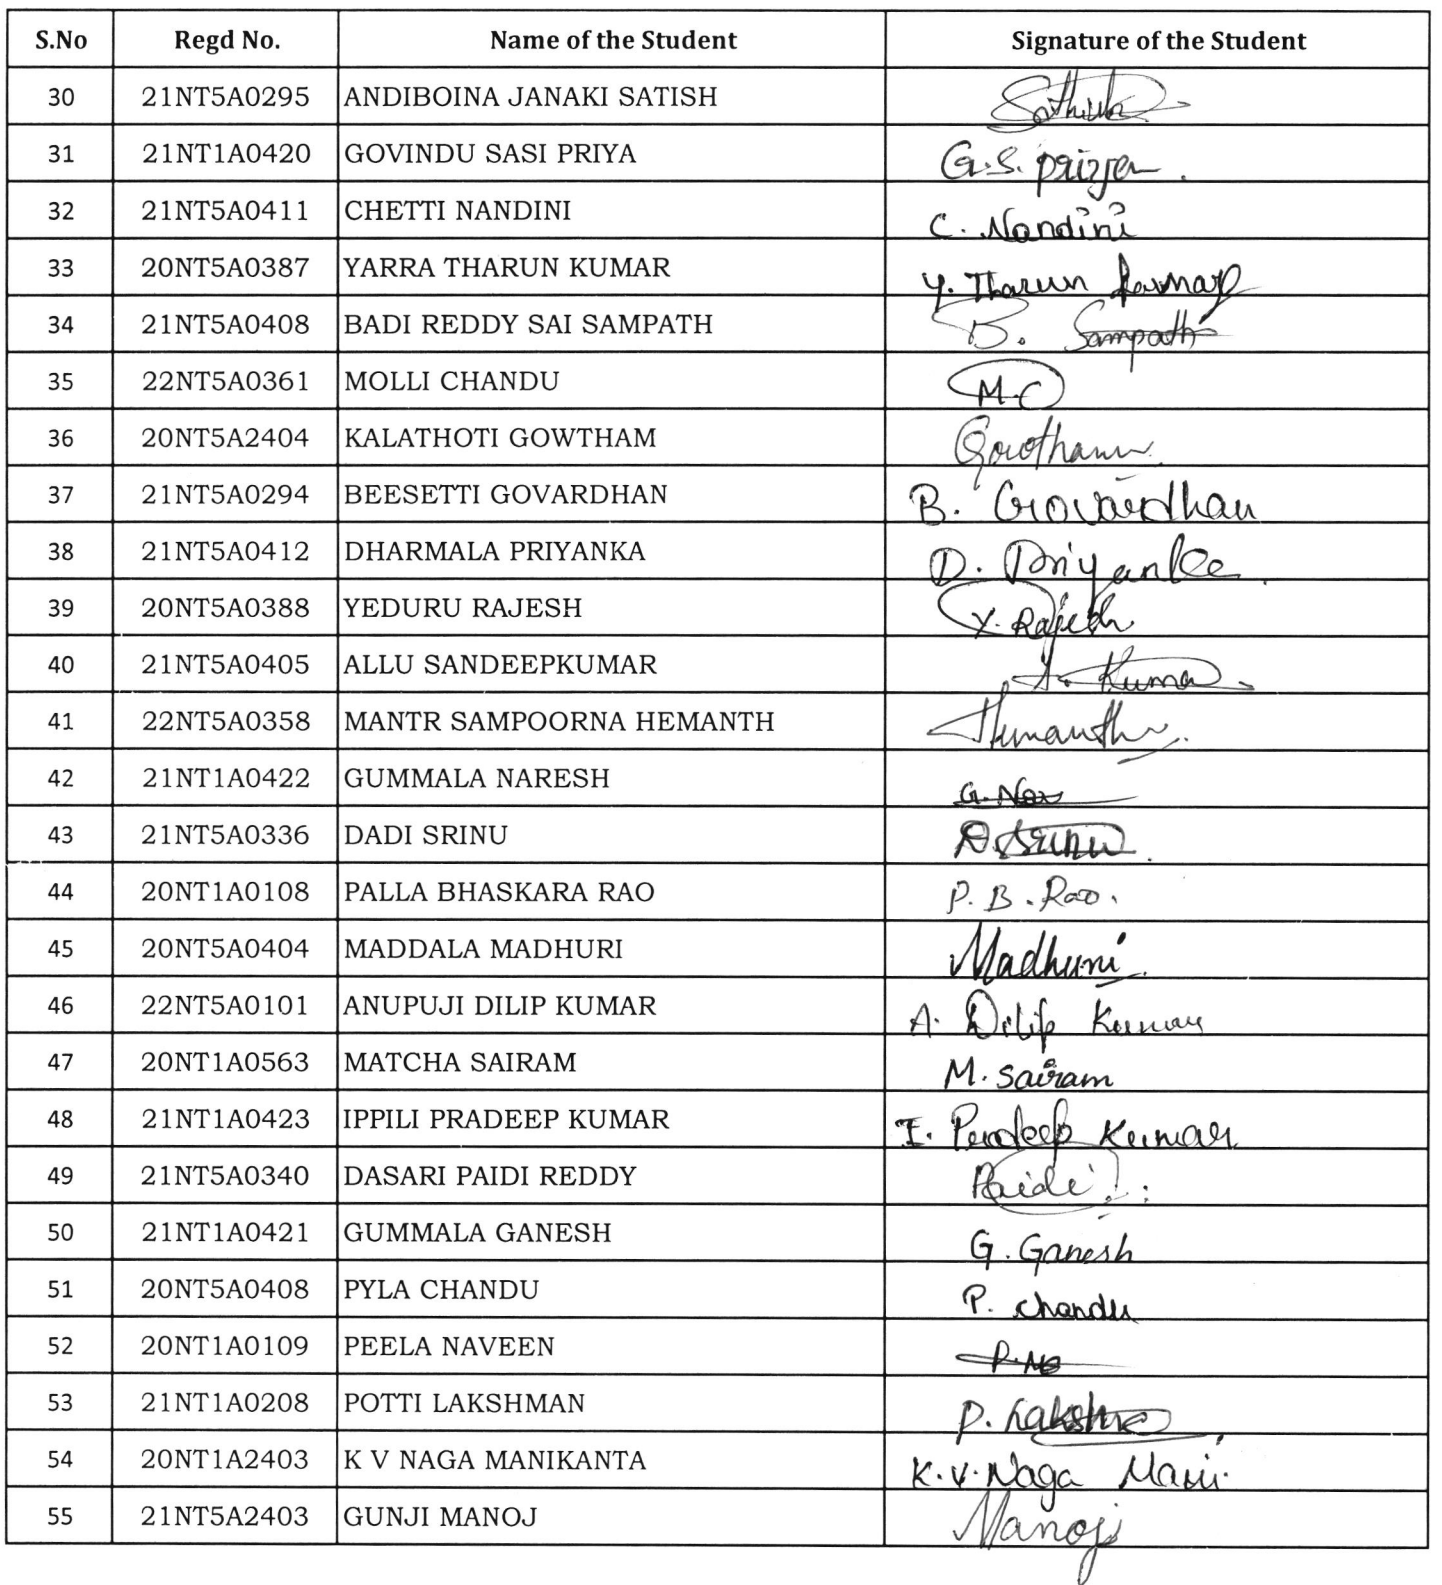 S.No Regd No. Name of the Student Signature of the Student
30 21NT5A0295 ANDIBOINA JANAKI SATISH
31 21NT1A0420 GOVINDU SASI PRIYA G.S. priya.
32 21NT5A0411 CHETTI NANDINI C. Nandini
33 20NT5A0387 YARRA THARUN KUMAR Y. Tharun Kumar
34 21NT5A0408 BADI REDDY SAI SAMPATH B. Sampath
35 22NT5A0361 MOLLI CHANDU M.C
36 20NT5A2404 KALATHOTI GOWTHAM Gowtham
37 21NT5A0294 BEESETTI GOVARDHAN B. Govardhan
38 21NT5A0412 DHARMALA PRIYANKA D. Priyanka
39 20NT5A0388 YEDURU RAJESH Y. Rajesh
40 21NT5A0405 ALLU SANDEEPKUMAR A. Kuma
41 22NT5A0358 MANTR SAMPOORNA HEMANTH Hemanth
42 21NT1A0422 GUMMALA NARESH G.
43 21NT5A0336 DADI SRINU D. Srinu
44 20NT1A0108 PALLA BHASKARA RAO P. B. Rao.
45 20NT5A0404 MADDALA MADHURI Madhuri
46 22NT5A0101 ANUPUJI DILIP KUMAR A. Dilip Kumar
47 20NT1A0563 MATCHA SAIRAM M. Sairam
48 21NT1A0423 IPPILI PRADEEP KUMAR I. Pradeep Kumar
49 21NT5A0340 DASARI PAIDI REDDY Paidi
50 21NT1A0421 GUMMALA GANESH G. Ganesh
51 20NT5A0408 PYLA CHANDU P. chandu
52 20NT1A0109 PEELA NAVEEN
53 21NT1A0208 POTTI LAKSHMAN P.
54 20NT1A2403 K V NAGA MANIKANTA K.V. Naga Mani.
55 21NT5A2403 GUNJI MANOJ Manoj